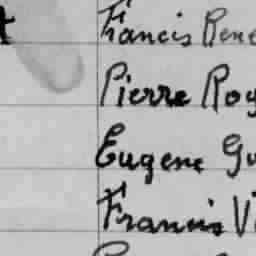 Francis René
Pierre Roy
Eugene Gu
Francis Vi